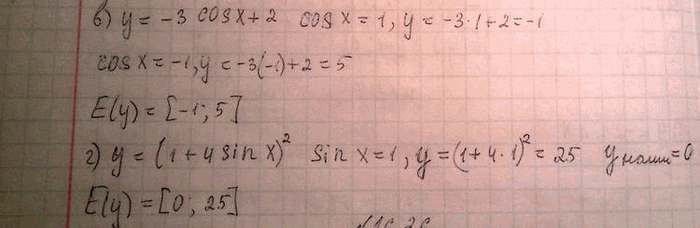 в) y = -3 cos x + 2   cos x = 1, y = -3·1+2=-1
cos x = -1, y = -3(-1)+2 = 5
E(y) = [-1; 5]
г) y = (1+4 sin x)²   sin x = 1, y = (1+4·1)² = 25   y наим = 0
E(y) = [0; 25]